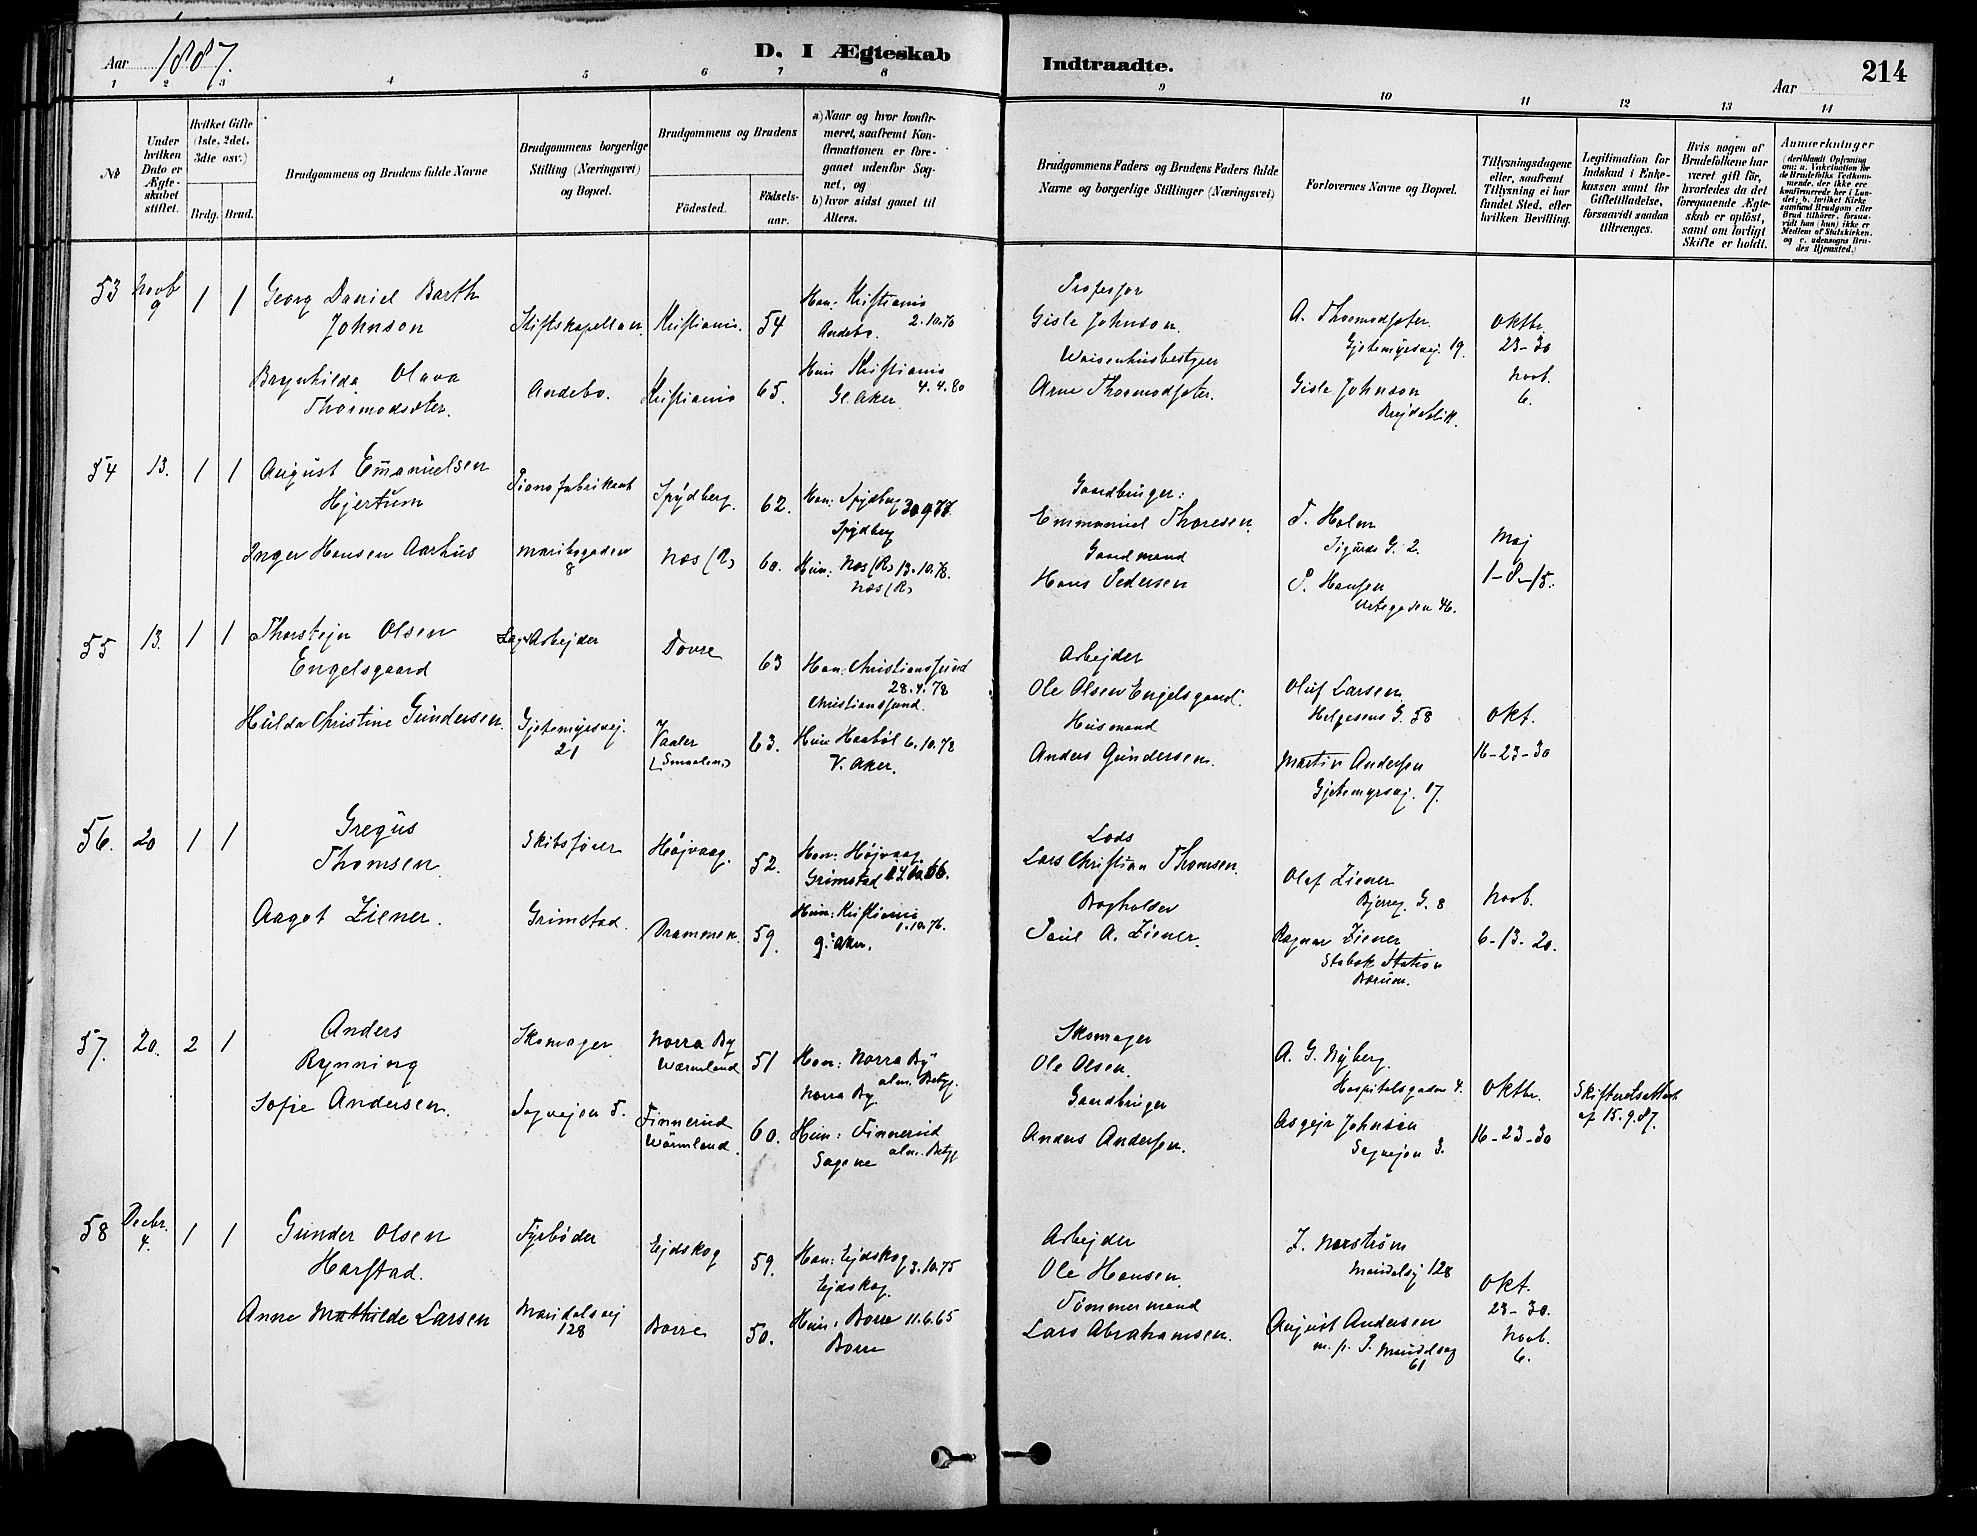 Aar 1887.
D. I Ægteskab
Indtraadte.
Aar
214
1 2 3 4 5 6 7 8 9 10 11 12 13 14
No
Under hvilken Dato er Ægteskabet stiftet.
Hvilket Gifte (1ste, 2det, 3dte osv.)
Brdg. Brud.
Brudgommens og Brudens fulde Navne
Brudgommens borgerlige Stilling (Næringsvei) og Bopæl.
Brudgommens og Brudens
Fødested.
Fødselsaar.
a) Naar og hvor konfirmeret, saafremt Konfirmationen er foregaaet udenfor Sognet, og
b) hvor sidst gaaet til Alters.
Brudgommens Faders og Brudens Faders fulde Navne og borgerlige Stillinger (Næringsvei)
Forlovernes Navne og Bopæl.
Tillysningsdagene eller, saafremt Tillysning ei har fundet Sted, efter hvilken Bevilling.
Legitimation for Indskud i Enkekassen samt for Giftetilladelse, forsaavidt saadan tiltrænges.
Hvis nogen af Brudefolkene har været gift før, hvorledes da det foregaaende Ægteskab er opløst, samt om lovligt Skifte er holdt.
Anmerkninger
(deriblandt Oplysning om: a. Vakcination for de Brudefolks Vedkommende, der ikke ere konfirmerede her i Landet; b. hvilket Kirkesamfund Brudgom eller Brud tilhører, forsaavidt han (hun) ikke er Medlem af Statskirken, og c. udensogns Brudes Hjemsted.)
53 Novb 9 1 1 Georg Daniel Barth Johnson
Stiftskapellan. Kristiania. 54
Han: Kristiania 2.10.70
Andebo.
Professor
Gisle Johnson.
A. Thormodsæter.
Gjetemyrsvej. 19.
Oktbr. 23-30
Brynhilda Olava Thormodsæter.
Andebo. Kristiania 65.
Hun Kristiania 4.4.80
Gl. Aker
Waisenhusbestyrer
Arne Thormodsæter.
Gisle Johnson
Brejdablik.
Novb. 6.
54 13. 1 1 August Emanuelsen Hjertum
Pianofabrikant Spydberg. 62.
Han: Spydberg 30.9.77.
Spydberg
Gaardbruger:
Emmanuel Thoresen.
T. Holm
Sigurds G. 2.
Maj
Inger Hansen Aarhus
Maribogaden 8 Næs (R) 60.
Hun: Næs (R) 13.10.78.
Næs (R)
Gaardmand
Hans Pedersen
P. Hansen
Urtegaden 46.
1-8-15.
55 13. 1 1 Thorstejn Olsen Engelsgaard
Arbejder Dovre 63
Han: Christianssund 28.4.78
Christianssund.
Arbejder
Ole Olsen Engelsgaard.
Oluf Larsen
Helgesens G. 58
Okt.
Hulda Christine Gundersen.
Gjetemyrsvej. 21
Vaaler (Smaalen.) 63.
Hun Haabøl 6.10.78
V. Aker.
Husmand
Anders Gundersen.
Martin Andersen
Gjetemyrsvej. 17.
16-23-30
56. 20 1 1 Gregus Thomsen.
Skibsfører Højvaag. 52.
Han: Højvaag.
Grimstad
Lods
Lars Christian Thomsen.
Olaf Ziener
Bjerreg. G. 8
Novb.
Aagot Ziener.
Grimstad. Drammen. 59.
Hun: Kristiania 1.10.76.
G. Aker.
Bogholder
Paul A. Ziener.
Ragnar Ziener
Stabæk Station
Bærum.
6-13-20.
57. 20. 2 1 Anders Rynning
Skomager Norra By Wærmland 51
Han: Norra By alm. Betyg.
Norra By.
Skomager
Ole Olsen.
A. G. Nyberg.
Hospitalsgaden 4.
Oktbr.
Skifteretsattest
af 15.9.87.
Sofie Andersen.
Sagvejen 5. Finnerud Wärmland. 60.
Hun: Finnerud alm. Betyg
Sagene
Gaardbruger
Anders Andersen.
Asgejr Johnsen
Sagvejen 3.
16-23-30
58 Decbr. 4. 1 1 Gunder Olsen Harstad.
Fyrbøder Ejdskog 59.
Han: Ejdskog 3.10.75
Ejdskog.
Arbejder
Ole Hansen.
Z. Norstrøm
Maridalsvj 128
Okt. 23-30.
Anne Mathilde Larsen
Maridalsvej 128 Borre 50.
Hun: Borre 11.6.65
Borre
Tømmermand
Lars Abrahamsen.
August Andersen
61
Novb. 6.